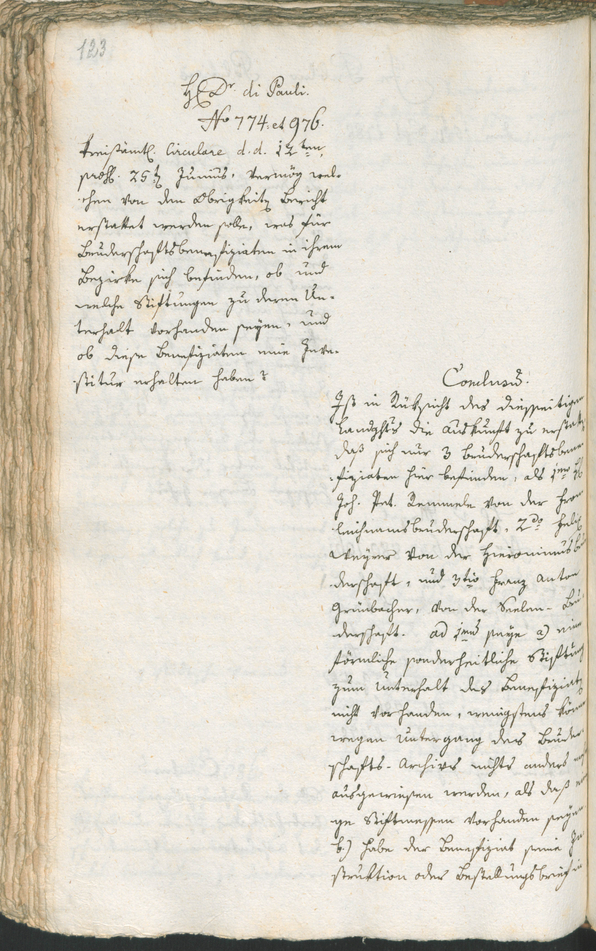 123
H Dr. di Pauli.
No 774. et 976.
Kreisämtl. Circulare d. d. 12ten,
prss. 25t Junius, vermög wel-
chen von den Obrigkeitn Bericht
erstattet werden solle, was für
Bruderschaftsbenefiziaten in ihrem
Bezirke sich befinden, ob und
welche Stiftungen zu deren Un-
terhalt vorhanden seyen, und
ob diese Benefiziaten eine Inve-
stitur erhalten haben?
Conclusum.
Ist in Rüksicht des diesseitigen
Landghts die Auskunft zu erstatt
daß sich nur 3 Bruderschaftsbene
fiziaten hier befinden, als 1mo H
Joh. Pet. Remmele von der Fron
leichnamsbruderschaft, 2do Felix
Weyrer von der Hieronimusbru
derschaft, und 3tio Franz Anton
Grünbacher, von der Seelen-Bru
derschaft. ad 1mum seye a) eine
förmliche sonderheitliche Stiftung
zum Unterhalt des Benefiziats
nicht vorhanden, wenigstens könne
wegen Untergang des Bruder-
schafts-Archivs nichts anders
ausgewiesen werden, als daß ei
ge Stiftmessen vorhanden seyen
b) habe der Benefiziat seine In
struktion oder Bestallungsbrief in